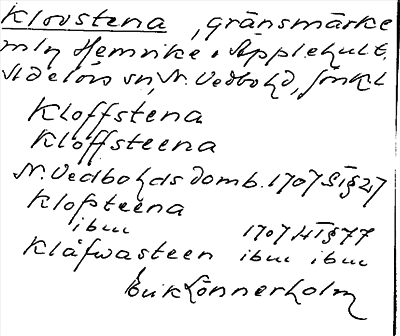 Klovstena, gränsmärke
mln Hemvike o Äpplehult,
sn, N. Vedbo hd,
Kloffstena
Kloffsteena
N. Vedbo hds domb. 1707
Klofsteena
ibm 1707
Klåfwasteen ibm ibm
Erik Lönnerholm